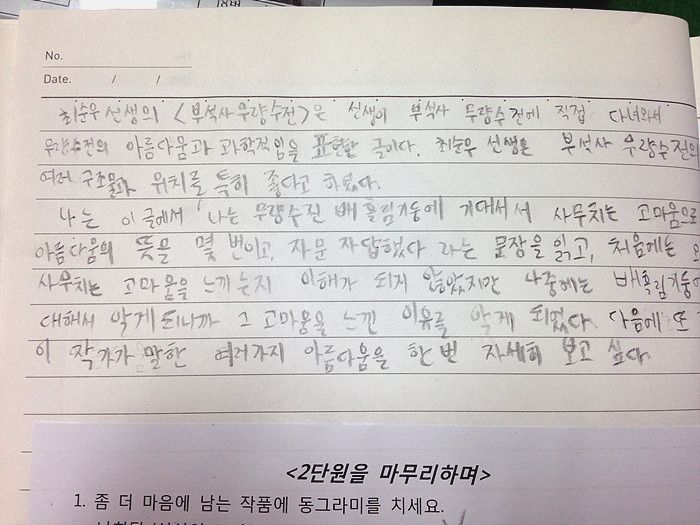 No.
Date. / /
최순우 선생의 <부석사 무량수전>은 선생이 부석사 무량수전에 직접 다녀와서
무량수전의 아름다움과 과학적임을 표현한 글이다. 최순우 선생은 부석사 무량수전의
여러 구조물과 위치를 특히 좋다고 하였다.
나는 이 글에서 '나는 무량수전 배흘림기둥에 기대서서 사무치는 고마움으로
아름다움의 뜻을 몇 번이고, 자문 자답했다 라는 문장을 읽고, 처음에는
사무치는 고마움을 느끼는지 이해가 되지 않았지만 나중에는 배흘림기둥에
대해서 알게되니까 그 고마움을 느낀 이유를 알게 되었다. 다음에 또
이 작가가 말한 여러가지 아름다움을 한번 자세히 보고 싶다.
<2단원을 마무리하며>
1. 좀 더 마음에 남는 작품에 동그라미를 치세요.